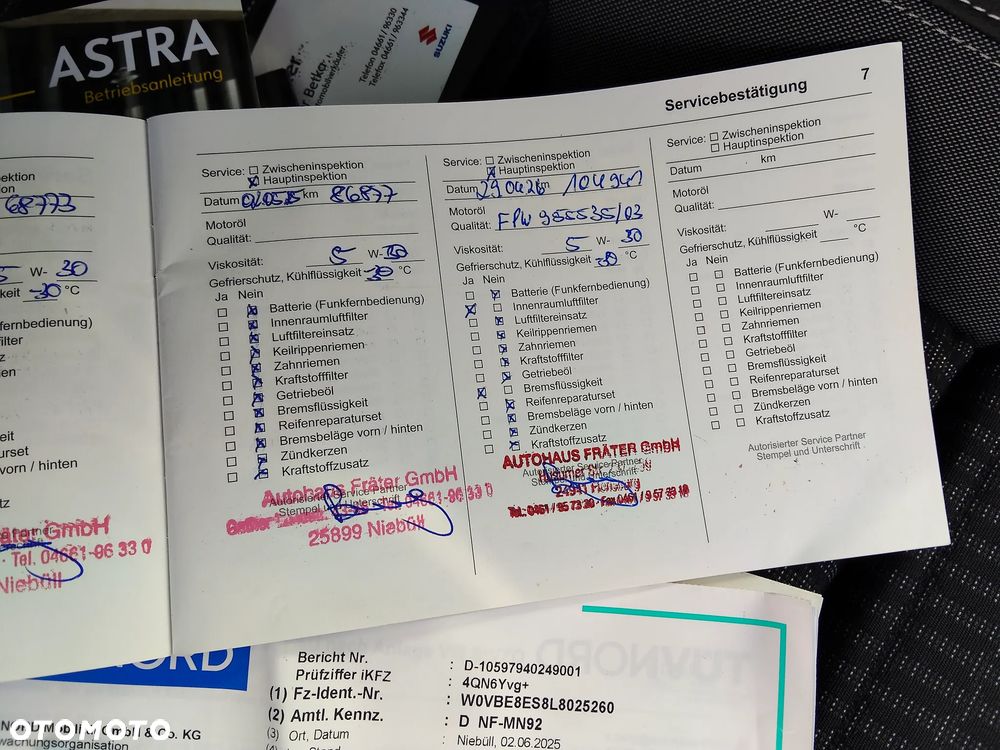 ASTRA
Betriebsanleitung
Betka
Automobilverkäufer
Telefon 04661/96330
Telefax 04661/963344
SUZUKI
7
Servicebestätigung
68773
W- 30
-30 °C
fernbedienung)
vorn / hinten
Tel. 04661-96 33 0
Niebüll
Service: Zwischeninspektion
Hauptinspektion
Datum km 86877
Motoröl
Qualität:
Viskosität: 5 W- 30
Gefrierschutz, Kühlflüssigkeit -30 °C
Ja Nein
Batterie (Funkfernbedienung)
Innenraumluftfilter
Luftfiltereinsatz
Keilrippenriemen
Zahnriemen
Kraftstofffilter
Getriebeöl
Bremsflüssigkeit
Reifenreparaturset
Bremsbeläge vorn / hinten
Zündkerzen
Kraftstoffzusatz
Autorisierter Service Partner
Stempel und Unterschrift
Autohaus Fräter GmbH
Tel. 04661-96 33 0
25899 Niebüll
Service: Zwischeninspektion
Hauptinspektion
Datum 290426 km 104941
Motoröl
Qualität: FPW 955535/03
Viskosität: 5 W- 30
Gefrierschutz, Kühlflüssigkeit -30 °C
Ja Nein
Batterie (Funkfernbedienung)
Innenraumluftfilter
Luftfiltereinsatz
Keilrippenriemen
Zahnriemen
Kraftstofffilter
Getriebeöl
Bremsflüssigkeit
Reifenreparaturset
Bremsbeläge vorn / hinten
Zündkerzen
Kraftstoffzusatz
AUTOHAUS FRÄTER GmbH
Autorisierter Service Partner
Stempel und Unterschrift
Service: Zwischeninspektion
Hauptinspektion
Datum km
Motoröl
Qualität:
Viskosität: W-
Gefrierschutz, Kühlflüssigkeit °C
Ja Nein
Batterie (Funkfernbedienung)
Innenraumluftfilter
Luftfiltereinsatz
Keilrippenriemen
Zahnriemen
Kraftstofffilter
Getriebeöl
Bremsflüssigkeit
Reifenreparaturset
Bremsbeläge vorn / hinten
Zündkerzen
Kraftstoffzusatz
Autorisierter Service Partner
Stempel und Unterschrift
NORD
Bericht Nr. : D-10597940249001
Prüfziffer iKFZ : 4QN6Yvg+
(1) Fz-Ident.-Nr. : W0VBE8ES8L8025260
(2) Amtl. Kennz. : D NF-MN92
(3) Ort, Datum : Niebüll, 02.06.2025
NORD Mobilität GmbH & Co. KG
OTOMOTO